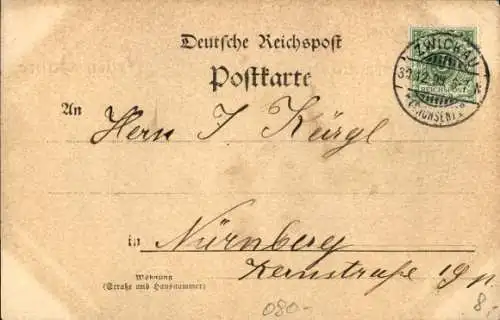 Deutsche Reichspost
Postkarte
ZWICKAU
30.12.98
(SACHSEN)
REICHSPOST
An
Herrn J. Kürgl
in Nürnberg
Wohnung
(Straße und Hausnummer)
Kernstraße 19 p.
080-
8,